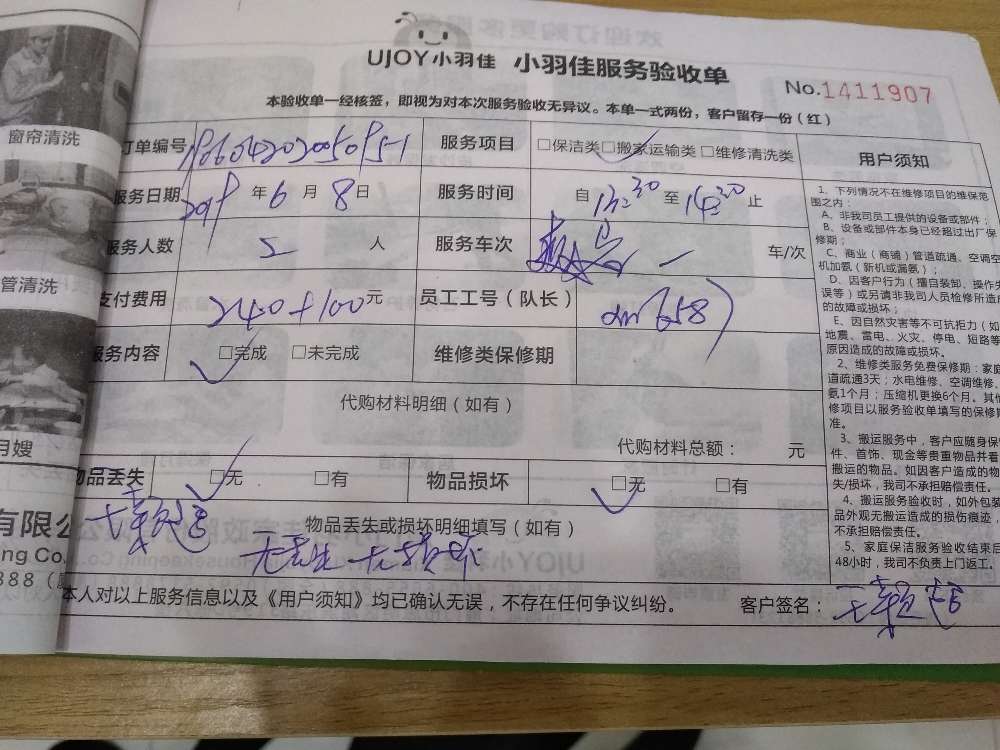 UJOY小羽佳 小羽佳服务验收单
No.1411907
本验收单一经核签，即视为对本次服务验收无异议。本单一式两份，客户留存一份（红）
订单编号
服务项目 □保洁类 □搬家运输类 □维修清洗类
用户须知
服务日期 年 6 月 8 日
服务时间 自 13:30 至 14:30 止
服务人数 2 人
服务车次 一 车/次
支付费用 240+100 元
员工工号（队长）
服务内容 □完成 □未完成
维修类保修期
代购材料明细（如有）
代购材料总额： 元
物品丢失 □无 □有
物品损坏 □无 □有
物品丢失或损坏明细填写（如有）
无丢失 无损坏
本人对以上服务信息以及《用户须知》均已确认无误，不存在任何争议纠纷。 客户签名：
1、下列情况不在维修项目的维保范
围之内：
A、非我司员工提供的设备或部件；
B、设备或部件本身已经超过出厂保
修期；
C、商业（商铺）管道疏通、空调空
机加氨（新机或漏氨）；
D、因客户行为（擅自装卸、操作失
误等）或另请非我司人员检修所造成
的故障或损坏；
E、因自然灾害等不可抗拒力（如
地震、雷电、火灾、停电、短路等
原因造成的故障或损坏。
2、维修类服务免费保修期：家庭
道疏通3天；水电维修、空调维修、
氨1个月；压缩机更换6个月。其他
修项目以服务验收单填写的保修期
准。
3、搬运服务中，客户应随身保管
件、首饰、现金等贵重物品并看
搬运的物品。如因客户造成的物
失/损坏，我司不承担赔偿责任。
4、搬运服务验收时，如外包装
品外观无搬运造成的损伤痕迹，
不承担赔偿责任。
5、家庭保洁服务验收结束后
48小时，我司不负责上门返工。
窗帘清洗
管清洗
月嫂
有限公
ing Co.
888